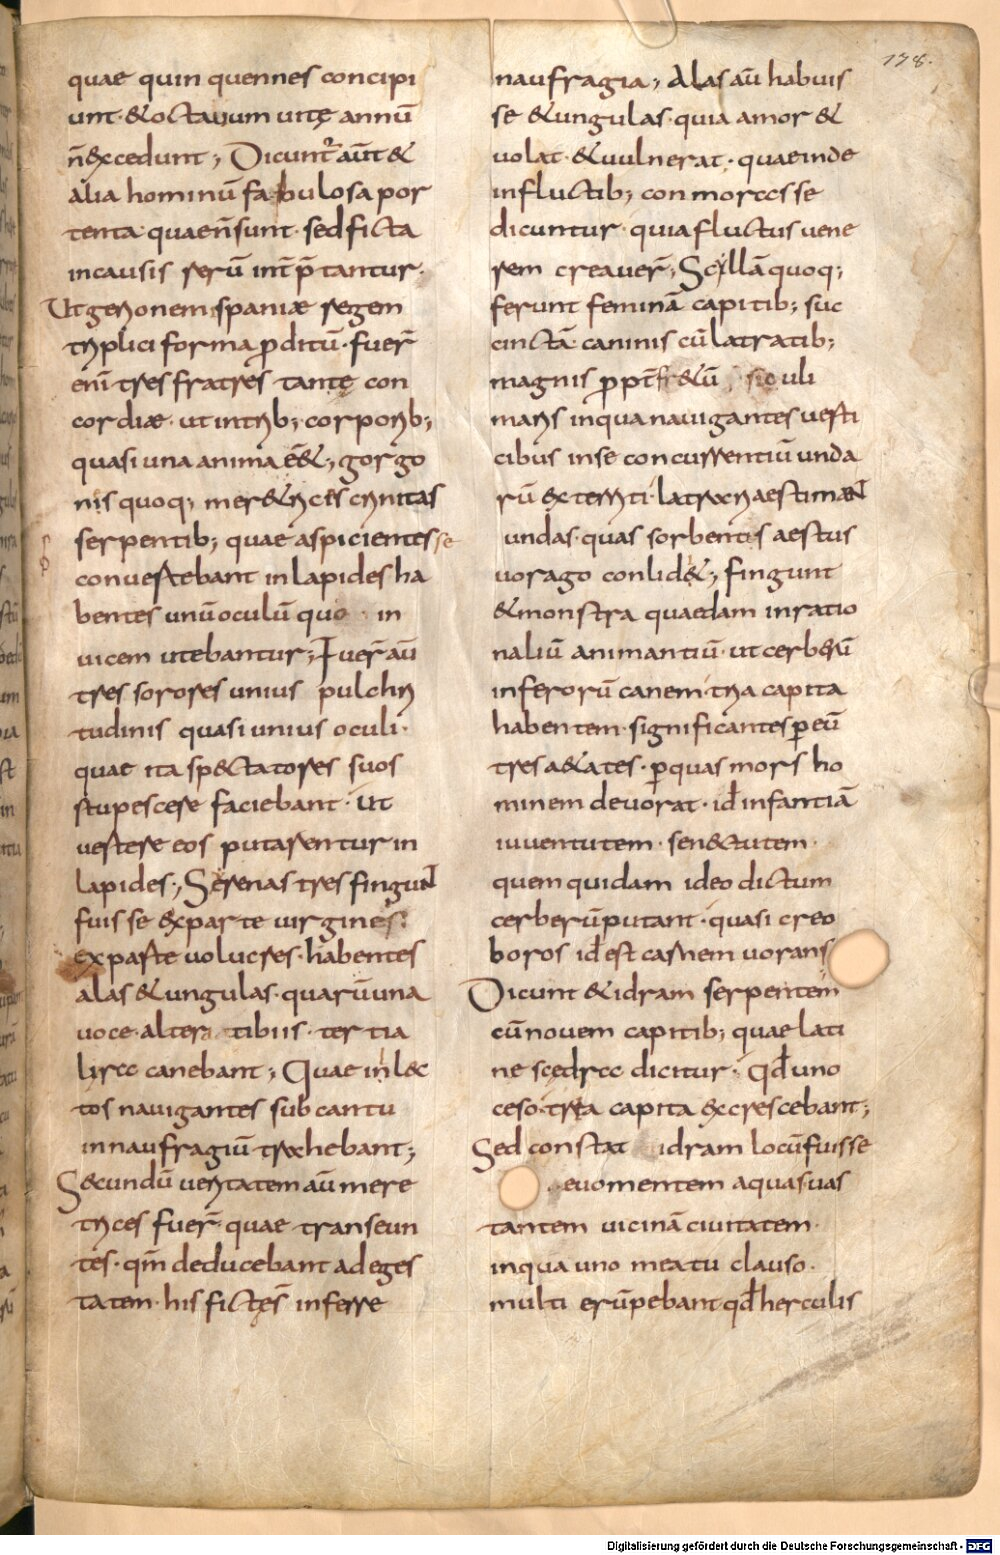 quae quin quennes concipi
unt· &octauum uitę annū
n̄excedunt; Dicunt᷑ aūt &
alia hominū fabulosa por
tenta· quaen̄sunt· sedficta
incausis rerū int̄p̄tantur·
Utgerionem spaniæ regem
triplici forma ꝓditū· fuer̄
enī tres fratres tantę con
cordiæ· ut intrib; corporib;
quasi una anima ēēt; gorgo
nis quoq; mer&ricis crinitas
serpentib; quae aspicientes se
conuertebant in lapides ha
bentes unū oculū quo in
uicem utebantur; Fuer̄ aū
tres sorores unius pulchri
tudinis quasi unius oculi·
quae ita spectatores suos
stupescere faciebant· ut
uertere eos putarentur in
lapides; Serenas tres fingunt
fuisse exparte uirgines·
exparte uolucres· habentes
alas & ungulas· quarū una
uoce· altera tibiis· tertia
lira canebant; Quae inlec
tos nauigantes sub cantu
innaufragiū trahebant;
Secundū ueritatem aūm mere
trices fuer̄· quae transeun
tes· qm̄ deducebant ad eges
tatem· his fictęs inferre
naufragia; Alas aū habuis
se & ungulas· quia amor &
uolat· & uulnerat· quaeinde
influctib; conmorasse
dicuntur· quia fluctus uene
rem creauer̄; Scyllā quoq;
ferunt feminā capitib; suc
cinctā caninis cū latratib;
magnis ꝓpt fr&ū siculi
maris inqua nauigantes uerti
cibus inse concurrentiū unda
rū exterriti· latrari aestimant
undas· quas sorbentis aestus
uorago conlid&; fingunt
& monstra quaedam inratio
naliū animantiū· ut cerberū
inferorū canem· tria capita
habentem· significantes ꝑ eū
tres a&ates· ꝑquas mors ho
minem deuorat· id̄ infantiā
iuuentutem· senectutem·
quem quidam ideo dictum
cerberū putant· quasi creo
boros id̄ est carnem uorans
Dicunt & idram serpentem
cū nouem capitib; quae lati
ne scędra dicitur· qd̄ uno
ceso· tria capita excrescebant;
Sed constat idram locū fuisse
euomentem aquas uas
tantem uicinā ciuitatem·
inqua uno meatu clauso·
multi erūpebant qd̄ herculis
178.
Digitalisierung gefördert durch die Deutsche Forschungsgemeinschaft - DFG